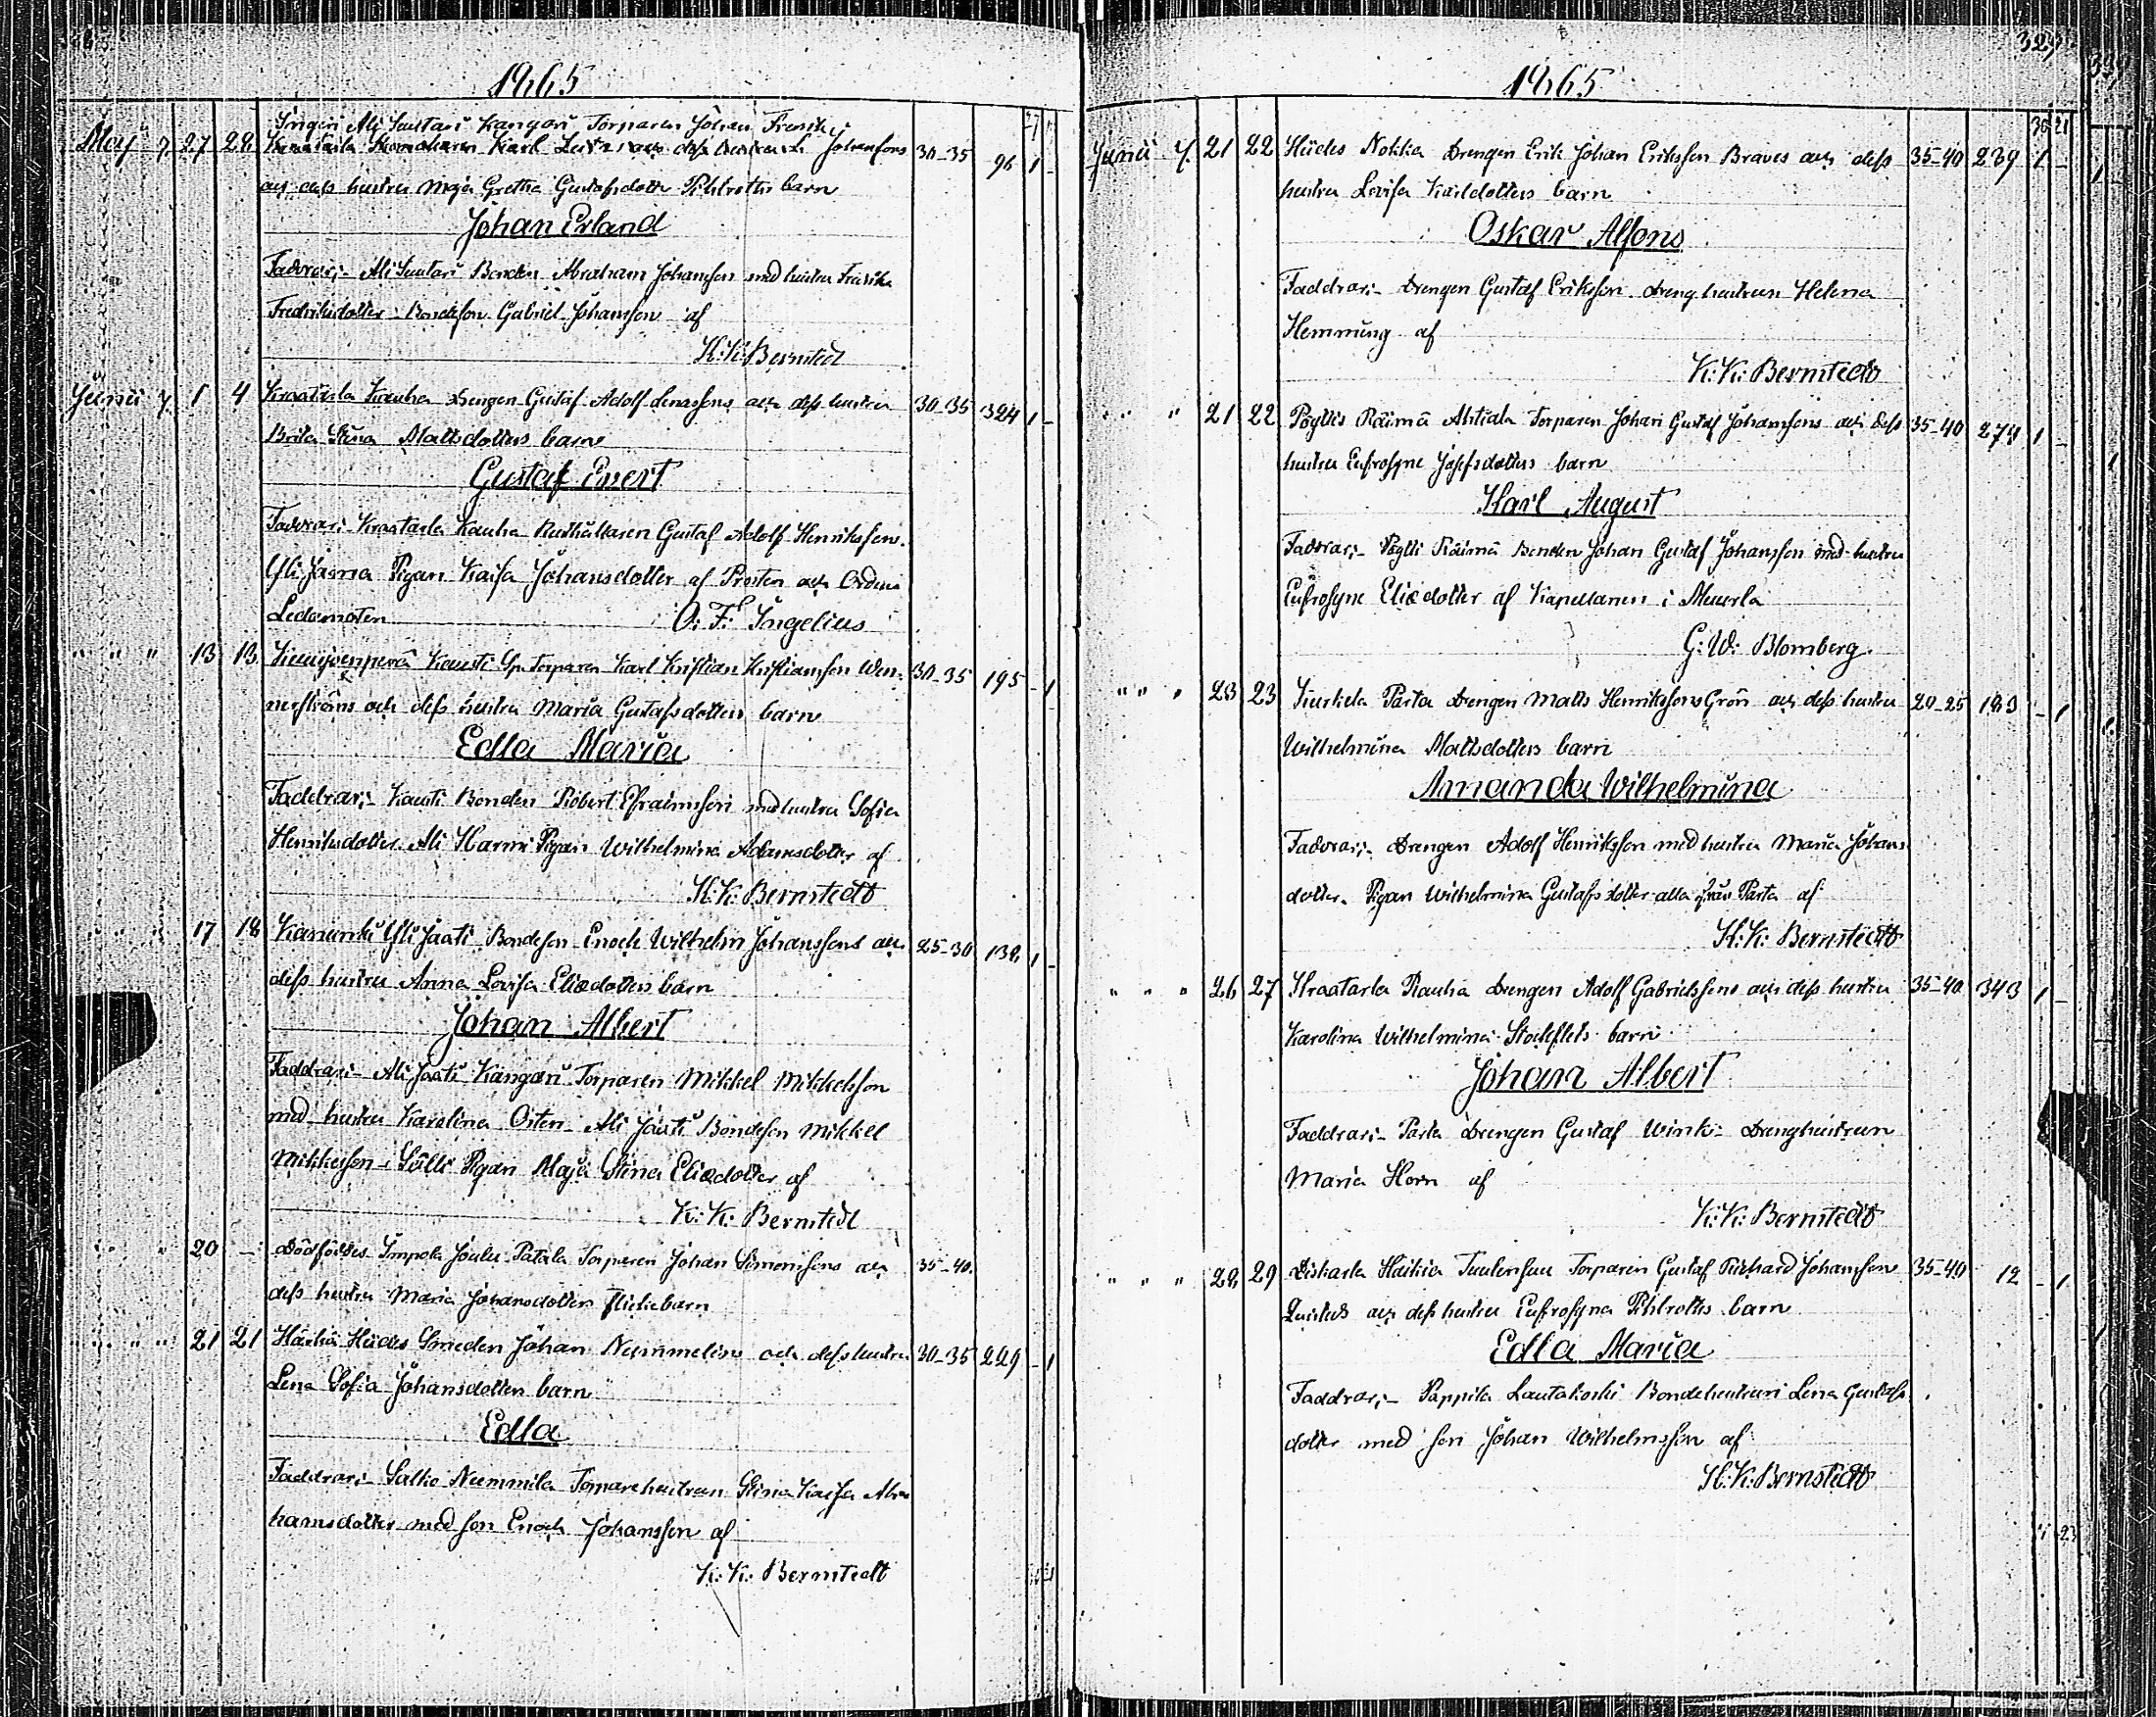 1865
Ali Suutari Kangari Torparen Johan Fredrik
Johanssons 30-35 96 1 -
Maj 7. 27 28
och dess hustru Maja Gretha Gustafsdotter Pihlroths barn
Johan Erland
Faddrar:- Ali Suutari Bonden Abraham Johansson med hustru Fredrika
Fredriksdotter. Bondeson Gabriel Johansson af
K: K: Bernstedt
Junii 7. 1 4 Kraatarla Drengen Gustaf Adolf och dess hustru 30-35 324 1 -
Brita Stina Mattsdotters barn
Gustaf Evert
Faddrar:- Kraatarla Rusthållaren Gustaf Adolf Henriksson.
Yli Jama Pigan Kaisa Johansdotter af Prosten och Ordens
Ledamoten O: F: Ingelius
" " " 13 13. Kausti Torparen Karl Kristian Kristiansson Wen- 30-35 195 - 1
nerströms och dess hustru Maria Gustafsdotters barn
Edla Maria
Faddrar:- Kausti Bonden Robert Efraimsson med hustru Sofia
Henriksdotter. Ali Harmi Pigan Wilhelmina Adamsdotter af
K: K: Bernstedt
17 18 Yli Jaati Bondeson Enoch Wilhelm Johanssons och 25-30 138 1 -
dess hustru Anna Lovisa Eliædotters barn
Johan Albert
Faddrar:- Ali Jaati Kangari Torparen Mikkel Mikkelsson
med hustru Karolina Osten. Ali Jaati Bondeson Mikkel
Mikkelsson. Pigan Maja Stina Eliædotter af
K: K: Bernstedt
" 20 - Dödföddes Impola Patala Torparen Johan Simonssons och 35-40.
dess hustru Maria Johansdotters flickebarn
" " " 21 21 Smeden Johan Nummelins och dess hustru 30-35 229 - 1
Lena Sofia Johansdotters barn
Edla
Faddrar:- Nummila Torparehustrun Stina Kaisa Abra
hamsdotter med son Enoch Johansson af
K: K: Bernstedt
329
1865
Junii 7. 21 22 Hiides Nokka Drengen Erik Johan Eriksson Braves och dess 35-40 239 1 -
hustru Lovisa Karlsdotters barn
Oskar Alfons
Faddrar:- Drengen Gustaf Eriksson. Drenghustrun Helena
Hemming af
K: K: Bernstedt
" " 21 22 Pöytis Räimä Ahtiala Torparen Johan Gustaf Johanssons och dess 35-40 274 1 -
hustru Eufrosyne Josefsdotters barn
Karl August
Faddrar:- Räimä Bonden Johan Gustaf Johansson med hustru
Eufrosyne Eliædotter af Kapellanen i Muurla
G: W: Blomberg.
" " " 23 23 Parta Drengen Matts Henrikssons Grön och dess hustru 20-25 183 - 1
Wilhelmina Mattsdotters barn
Amanda Wilhelmina
Faddrar:- Drengen Adolf Henriksson med hustru Maria Johans
dotter. Pigan Wilhelmina Gustafsdotter alla från Parta af
K: K: Bernstedt
" " " 26 27 Kraatarla Rauha Drengen Adolf Gabrielssons och dess hustru 35-40 343 1 -
Karolina Wilhelmina barn
Johan Albert
Faddrar:- Parta Drengen Gustaf Wink- Drenghustrun
Maria Horn af
K: K: Bernstedt
" " " 28 29 Torparen Gustaf Richard Johansson 35-40 12 - 1
och dess hustru Eufrosyna Pihlroths barn
Edla Maria
Faddrar:- Pappila Lautakoski Bondehustrun Lena Gustafs
dotter med son Johan Wilhelmsson af
K: K: Bernstedt